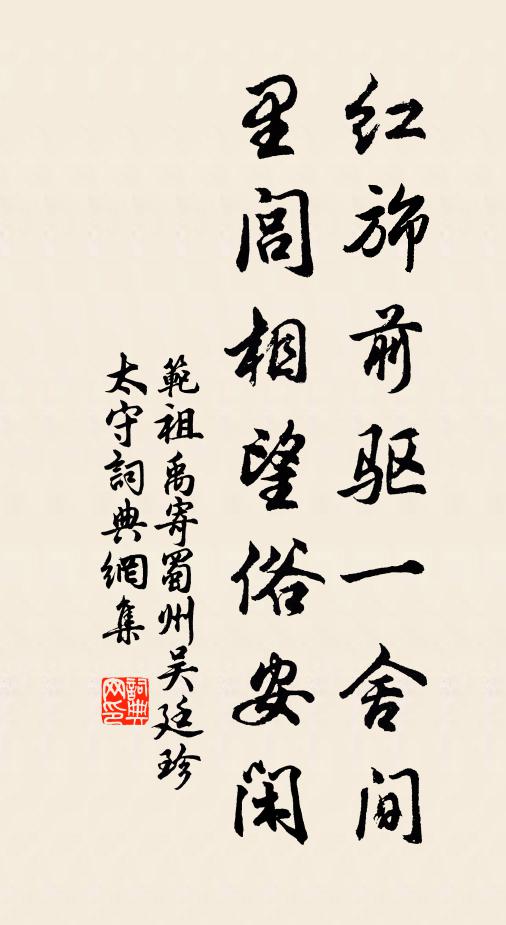 红旆前驱一舍间
里闾相望俗安闲
範祖禹寄蜀州吴廷珍
太守詞典網集
詞典
网印